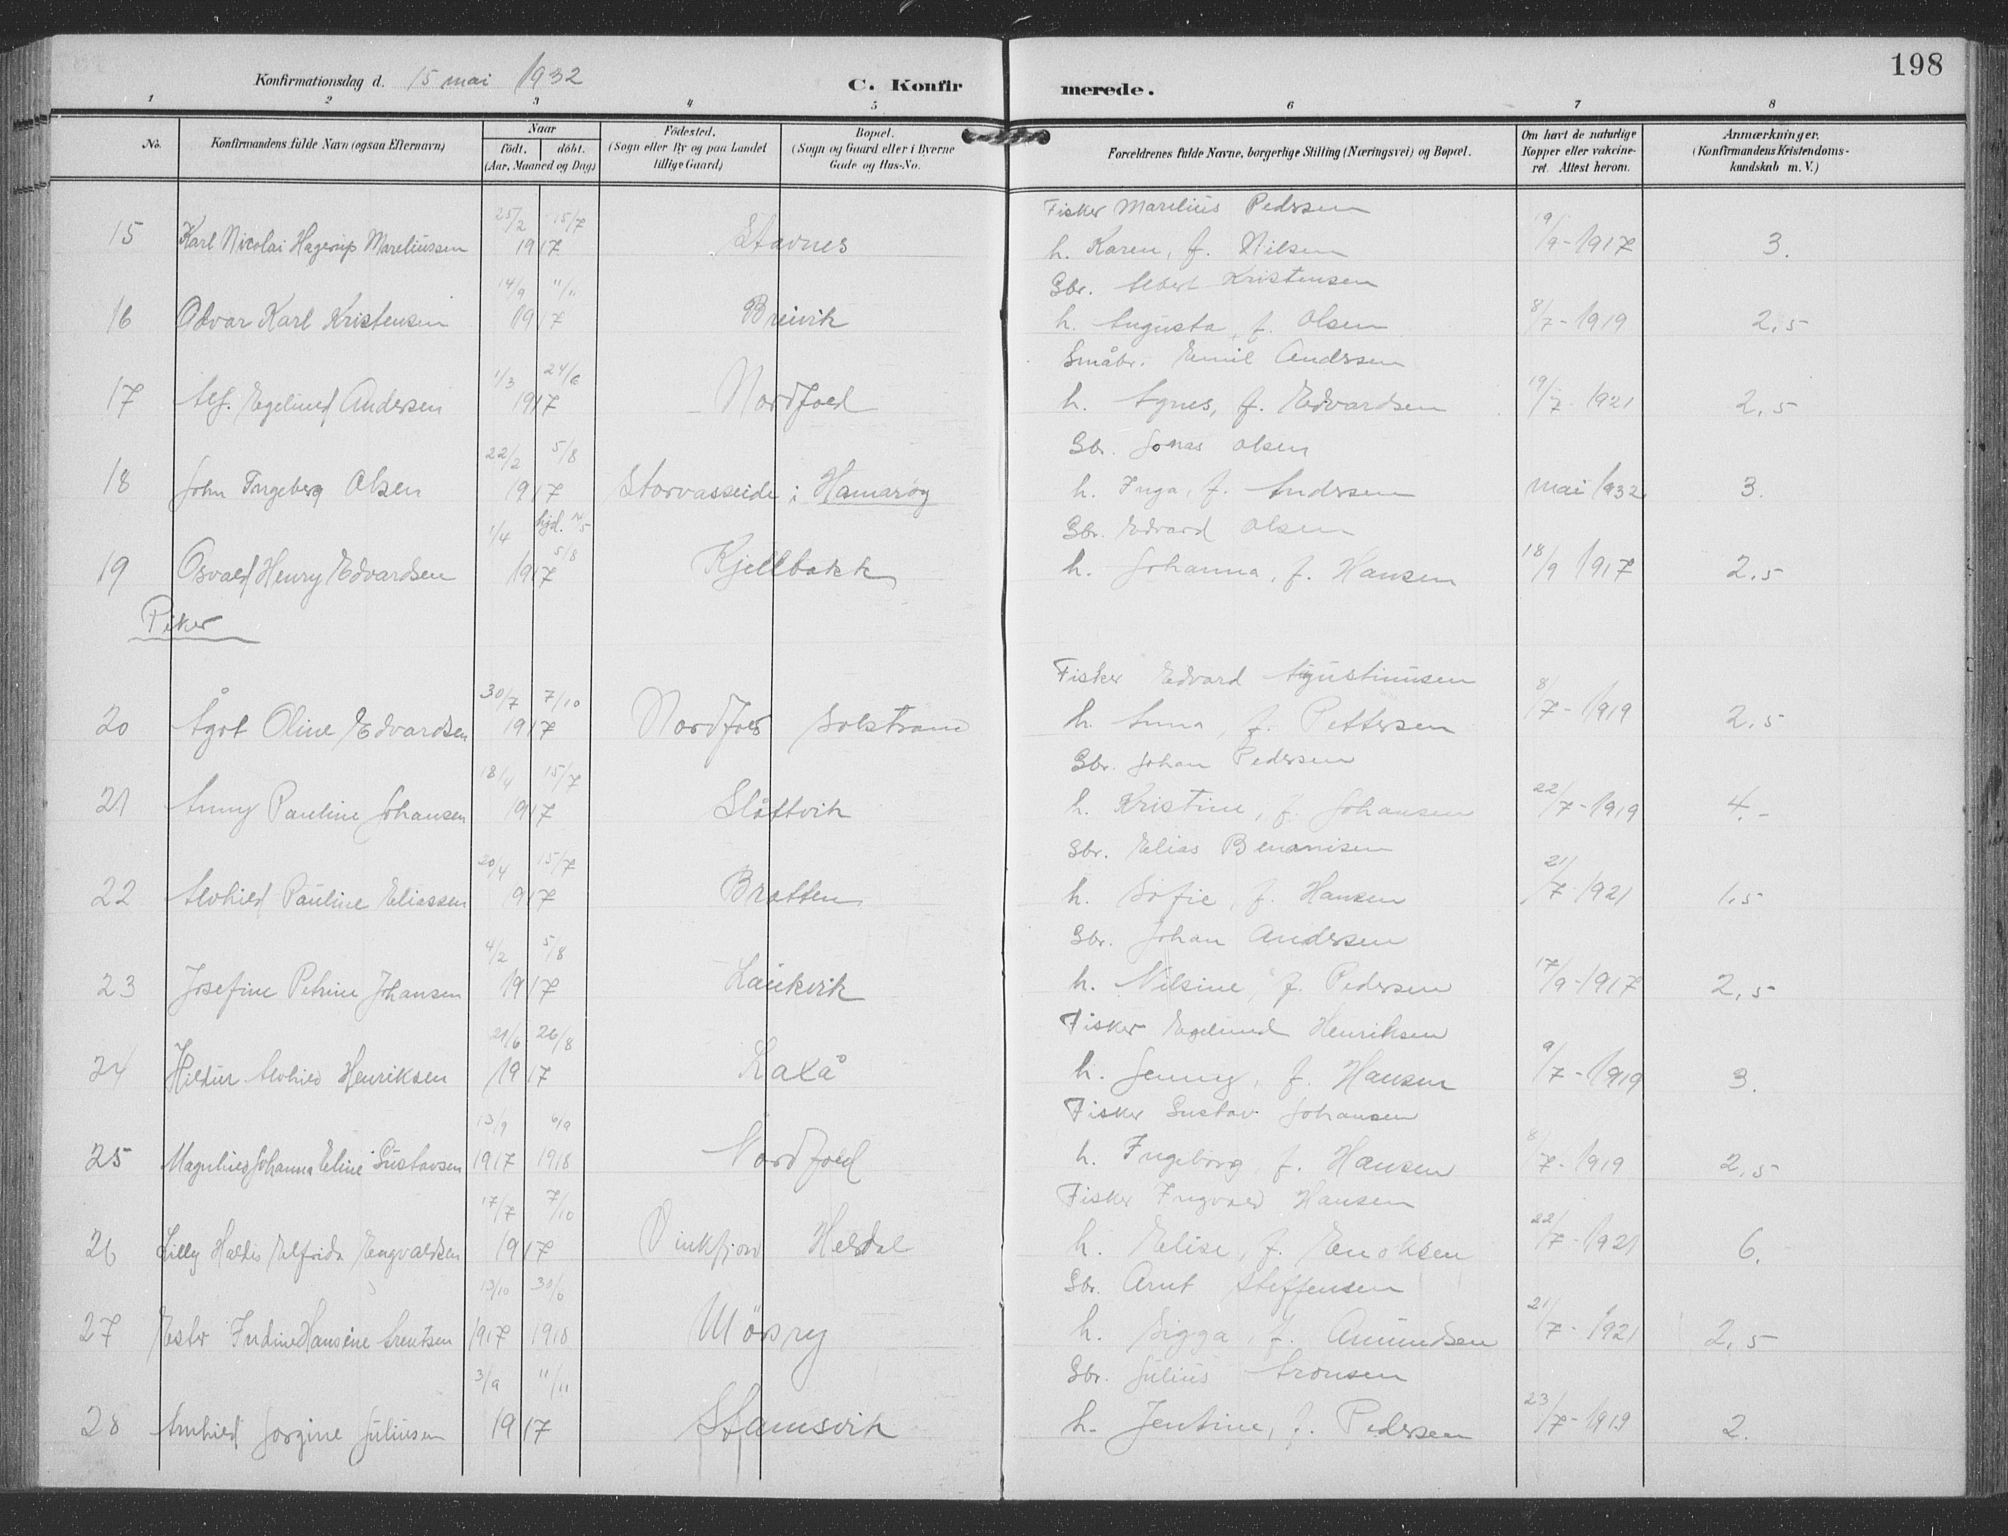 198
Konfirmationsdag d. 15 mai 1932
C. Konfirmerede.
1 2 3 4 5 6 7 8
No.
Konfirmandens fulde Navn (ogsaa Efternavn)
Naar
födt. döbt.
(Aar, Maaned og Dag)
Födested.
(Sogn eller By og paa Landet
tillige Gaard)
Bopæl.
(Sogn og Gaard eller i Byerne
Gade og Hus-No.
Forældrenes fulde Navne, borgerlige Stilling (Næringsvei) og Bopæl.
Om havt de naturlige
Kopper eller vakcine-
ret. Attest herom.
Anmærkninger.
(Konfirmandens Kristendoms-
kundskab m. V.)
25/2 15/7 Fisker Marelius Pedersen
15 Karl Nicolai Hagerup Mareliussen 1917 Stavnes h. Karen, f. Nilsen 19/9-1917 3.
14/9 11/11 Gbr. Albert Kristensen
16 Odvar Karl Kristensen 1917 Breivik h. Augusta, f. Olsen 8/7-1919 2,5
1/3 24/6 Småbr. Emil Andersen
17 Alf. Egelund Andersen 1917 Nordfold h. Agnes, f. Edvardsen 19/7 1921 2,5
22/2 5/8 Gbr. Jonas Olsen
18 John Ingeberg Olsen 1917 Storvasseide i Hamarøy h. Inga, f. Andersen mai 1932 3.
1/4 hjd. 14/5 Gbr. Edvard Olsen
19 Osvald Henry Edvardsen 5/8 1917 Kjellbakk h. Johanna, f. Hansen 18/9 1917 2,5
Piker
30/7 7/10 Fisker Edvard Agustinusen
20 Ågot Oline Edvardsen 1917 Nordfold Solstrand h. Anna, f. Pettersen 8/7-1919 2,5
18/4 15/7 Gbr. Johan Pedersen
21 Anny Pauline Johansen 1917 Slåttvik h. Kristine, f. Johansen 22/7-1919 4.-
20/4 15/7 Gbr. Elias Benonisen
22 Alvhild Pauline Eliassen 1917 Bratten h. Sofie, f. Hansen 21/7-1921 1,5
4/2 5/8 Gbr. Johan Andersen
23 Josefine Petrine Johansen 1917 Laukvik h. Nilsine, f. Pedersen 17/9-1917 2,5
21/6 26/8 Fisker Egelund Henriksen
24 Hildur Alvhild Henriksen 1917 Laxå h. Jenny, f. Hansen 9/7-1919 3.
13/9 6/9 Fisker Gustav Johansen
25 Magnhild Johanna Eline Gustavsen 1917 1918 Nordfold h. Ingeborg, f. Hansen 8/7-1919 2,5
17/7 7/10 Fisker Ingvald Hansen
26 Lilly Haldis Elfrida Engvaldsen 1917 Vinkfjord Helldal h. Elise, f. Enoksen 22/7-1921 6.
13/10 30/6 Gbr. Arnt Steffensen
27 Ester Indine Hansine Arentsen 1917 1918 Mösry h. Sigga, f. Amundsen 21/7-1921 2,5
3/9 11/11 Gbr. Julius Aronsen
28 Arnhild Jorgine Juliusen 1917 Stamsvik h. Jentine, f. Pedersen 23/7-1919 2.